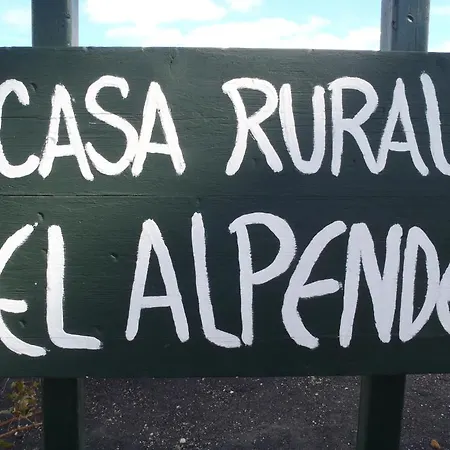 CASA RURAL
EL ALPENDE